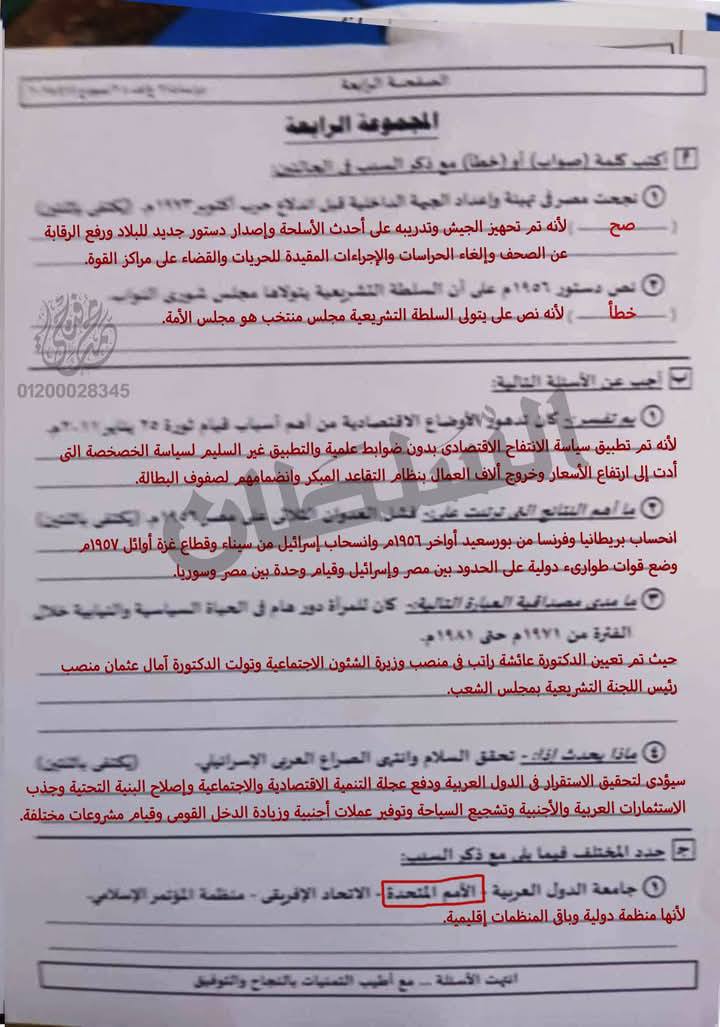 الصفحة الرابعة
المجموعة الرابعة
أكتب كلمة (صواب) أو (خطأ) مع ذكر السبب فى الحالتين:
١ نجحت مصر فى تهيئة وإعداد الجبهة الداخلية قبل اندلاع حرب أكتوبر ١٩٧٣م. (يكتفى باثنتين)
( صح ) لأنه تم تجهيز الجيش وتدريبه على أحدث الأسلحة وإصدار دستور جديد للبلاد ورفع الرقابة
عن الصحف وإلغاء الحراسات والإجراءات المقيدة للحريات والقضاء على مراكز القوة.
٢ نص دستور ١٩٥٦م على أن السلطة التشريعية يتولاها مجلس شورى النواب.
( خطأ ) لأنه نص على يتولى السلطة التشريعية مجلس منتخب هو مجلس الأمة.
01200028345
ب أجب عن الأسئلة التالية:
١ بم تفسر:- كان تدهور الأوضاع الاقتصادية من أهم أسباب قيام ثورة ٢٥ يناير ٢٠١١م.
السلطان
لأنه تم تطبيق سياسة الانتفاح الاقتصادى بدون ضوابط علمية والتطبيق غير السليم لسياسة الخصخصة التى
أدت إلى ارتفاع الأسعار وخروج ألاف العمال بنظام التقاعد المبكر وانضمامهم لصفوف البطالة.
٢ ما أهم النتائج التى ترتبت على:- فشل العدوان الثلاثى على مصر ١٩٥٦م. (يكتفى باثنتين)
انحساب بريطانيا وفرنسا من بورسعيد أواخر ١٩٥٦م وانسحاب إسرائيل من سيناء وقطاع غزة أوائل ١٩٥٧م
وضع قوات طوارىء دولية على الحدود بين مصر وإسرائيل وقيام وحدة بين مصر وسوريا.
٣ ما مدى مصداقية العبارة التالية:- كان للمرأة دور هام فى الحياة السياسية والنيابية خلال
الفترة من ١٩٧١م حتى ١٩٨١م.
حيث تم تعيين الدكتورة عائشة راتب فى منصب وزيرة الشئون الاجتماعية وتولت الدكتورة آمال عثمان منصب
رئيس اللجنة التشريعية بمجلس الشعب.
٤ ماذا يحدث إذا:- تحقق السلام وانتهى الصراع العربى الإسرائيلي. (يكتفى باثنتين)
سيؤدى لتحقيق الاستقرار فى الدول العربية ودفع عجلة التنمية الاقتصادية والاجتماعية وإصلاح البنية التحتية وجذب
الاستثمارات العربية والأجنبية وتشجيع السياحة وتوفير عملات أجنبية وزيادة الدخل القومى وقيام مشروعات مختلفة.
ج حدد المختلف فيما يلى مع ذكر السبب:
١ جامعة الدول العربية - الأمم المتحدة - الاتحاد الإفريقى - منظمة المؤتمر الإسلامي.
لأنها منظمة دولية وباقى المنظمات إقليمية.
انتهت الأسئلة ... مع أطيب التمنيات بالنجاح والتوفيق